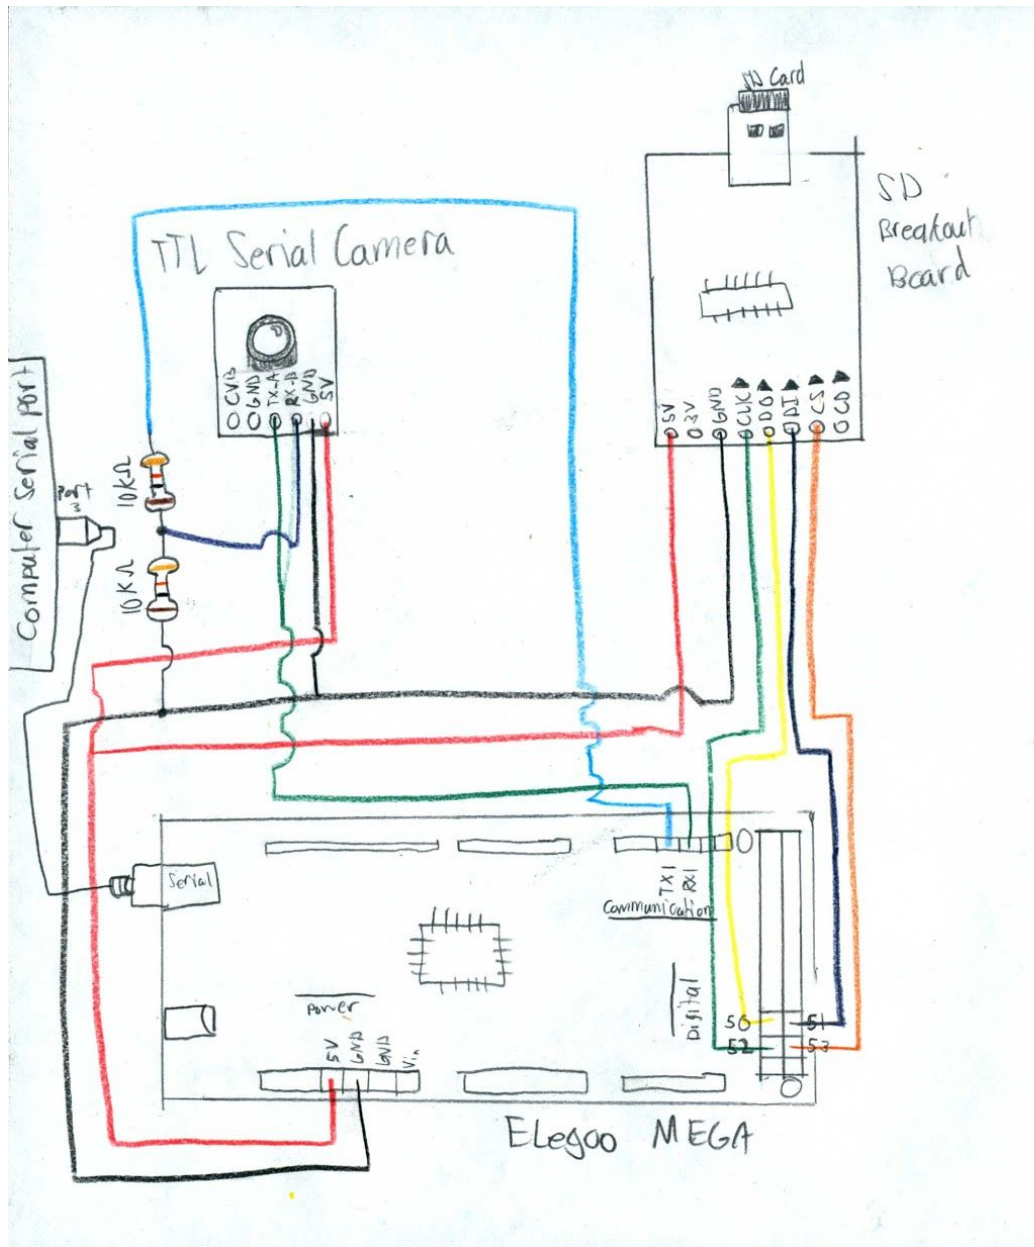 SD Card
SD
Breakout
Board
TTL Serial Camera
CVB
GND
TX-A
RX-B
GND
5V
5V
3V
GND
CLK
DO
DI
CS
CD
Computer Serial port
port
3
10KΩ
10KΩ
Serial
TX1
RX1
Communication
Digital
50
51
52
53
Power
5V
GND
GND
Vin
ELegoo MEGA